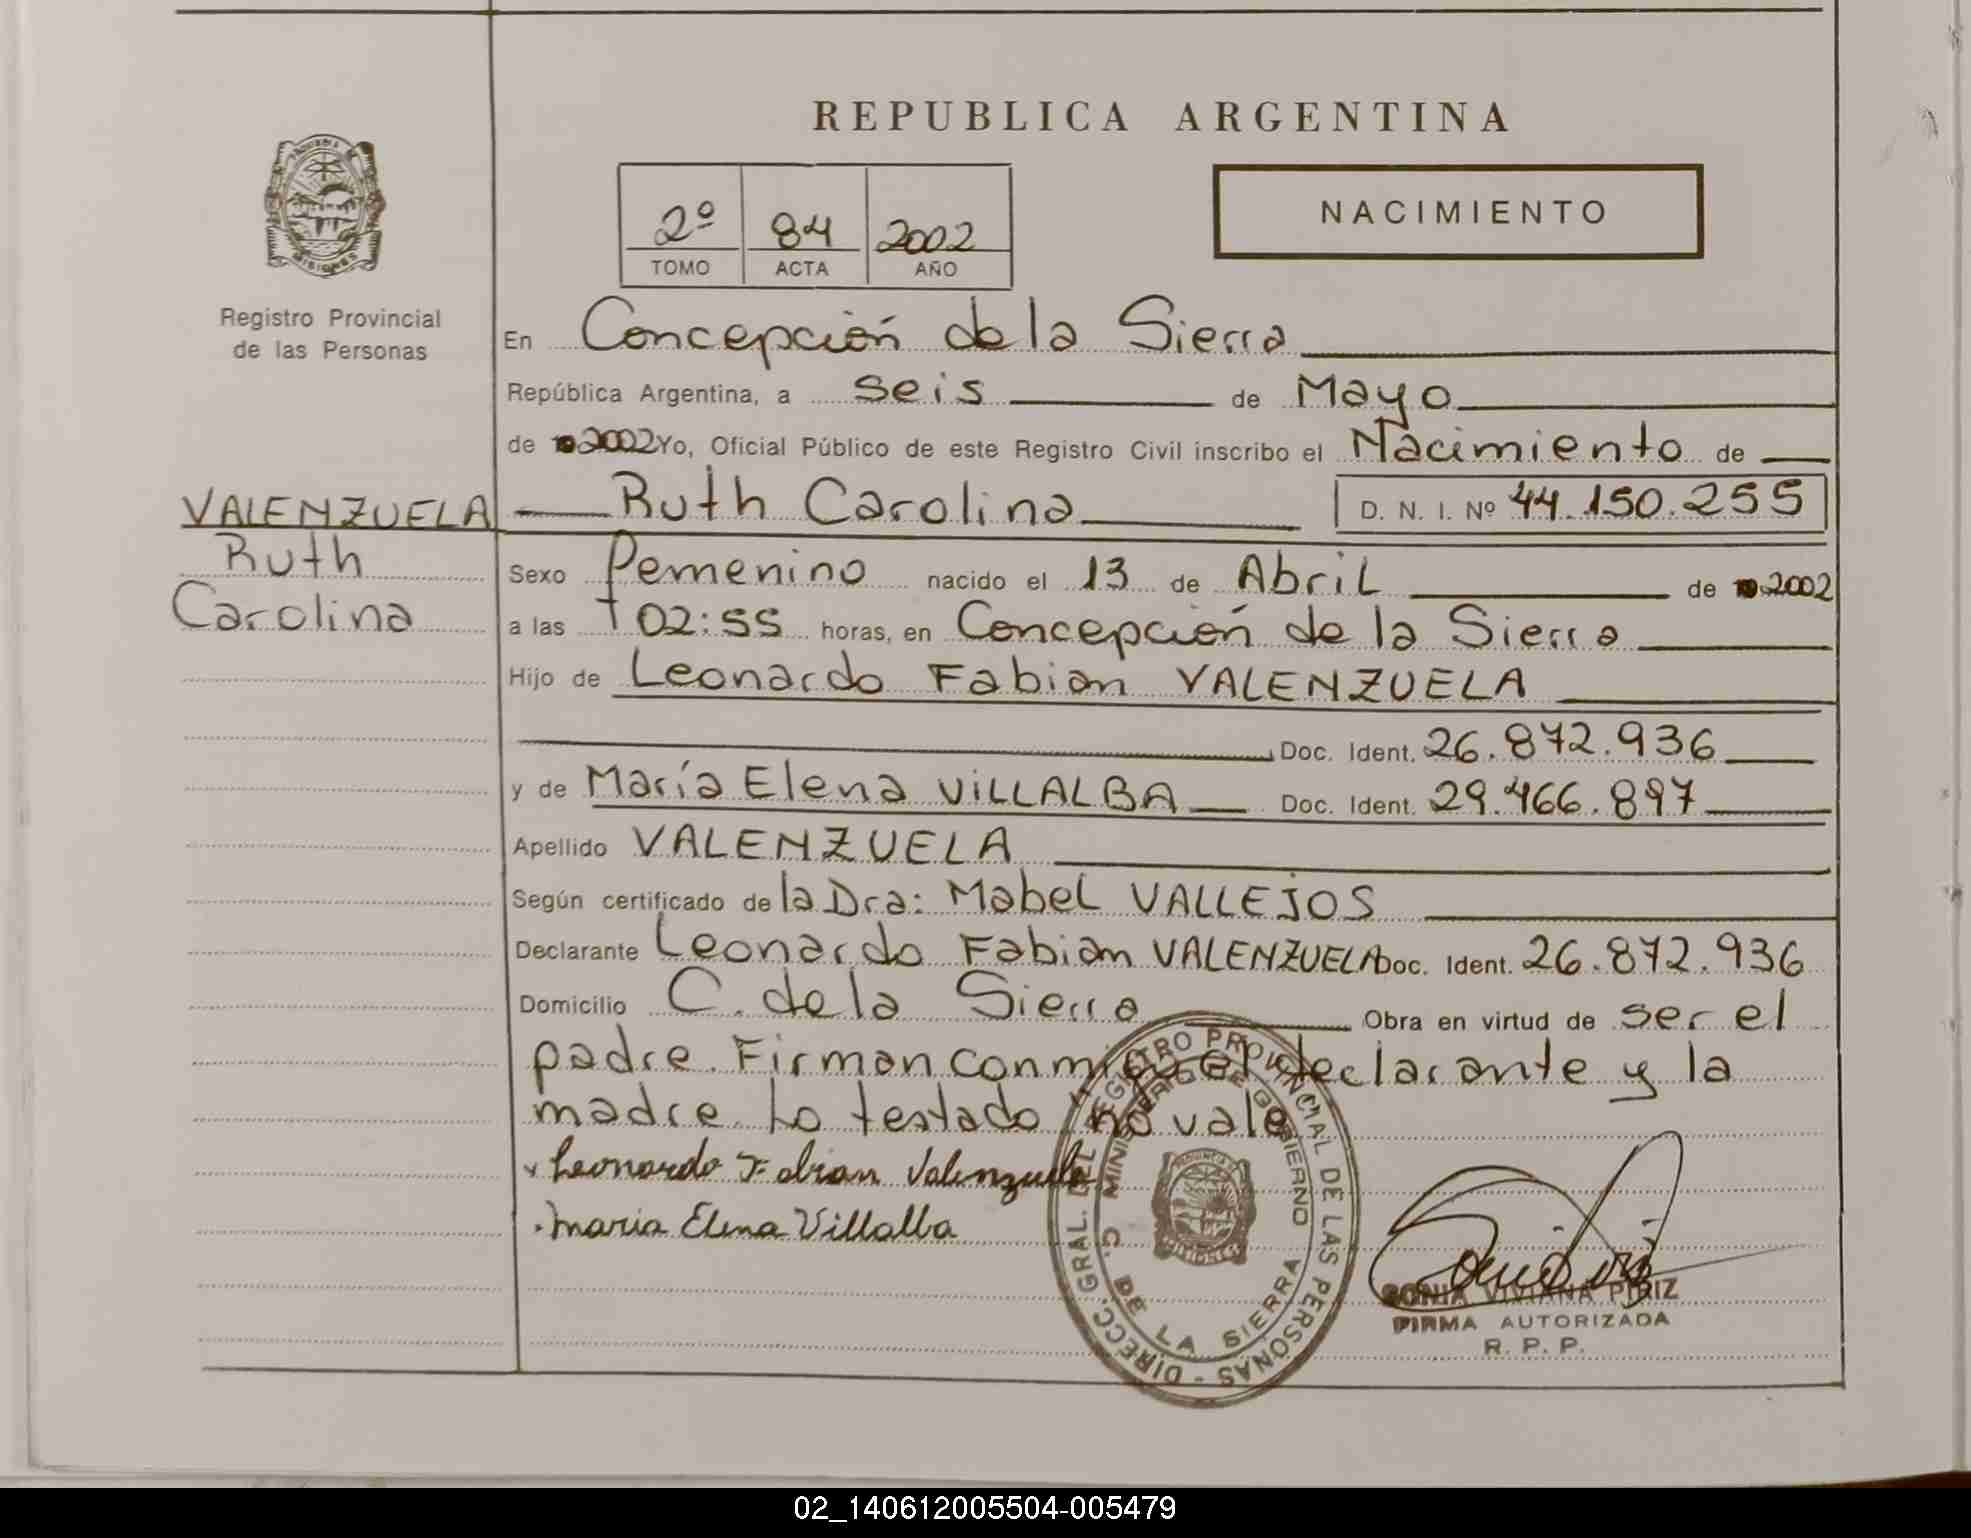 REPUBLICA ARGENTINA
PROVINCIA DE
MISIONES
Registro Provincial
de las Personas
2º 84 2002
TOMO ACTA AÑO
NACIMIENTO
En Concepción de la Sierra
República Argentina, a seis de Mayo
de 2002 Yo, Oficial Público de este Registro Civil inscribo el Nacimiento de
VALENZUELA
Ruth
Carolina
Ruth Carolina D. N. I. Nº 44.150.255
Sexo Femenino nacido el 13 de Abril de 2002
a las 02:55 horas, en Concepción de la Sierra
Hijo de Leonardo Fabian VALENZUELA
Doc. Ident. 26.872.936
y de María Elena VILLALBA Doc. Ident. 29.466.897
Apellido VALENZUELA
Según certificado de la Dra: Mabel VALLEJOS
Declarante Leonardo Fabian VALENZUELA Doc. Ident. 26.872.936
Domicilio C. de la Sierra Obra en virtud de ser el
padre. Firman conmigo el declarante y la
madre. Lo testado no vale
Leonardo Fabian Valenzuela
Maria Elena Villalba
DIRECC. GRAL. DEL REGISTRO PROVINCIAL DE LAS PERSONAS -
MINISTERIO DE GOBIERNO
C. DE LA SIERRA
SONIA VIVIANA PIRIZ
FIRMA AUTORIZADA
R. P. P.
02_140612005504-005479